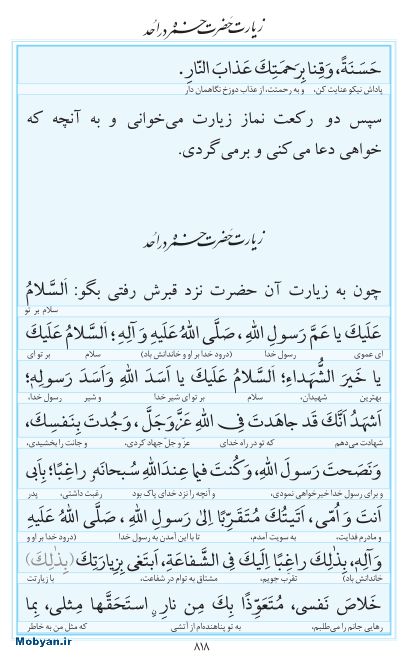 زیارت حضرت حمزه در احد
حَسَنَةً، وَقِنا بِرَحمَتِكَ عَذابَ النّارِ.
پاداش نیکو عنایت کن، و به رحمتت، از عذاب دوزخ نگاهمان دار
سپس دو رکعت نماز زیارت می‌خوانی و به آنچه که
خواهی دعا می‌کنی و برمی‌گردی.
زیارت حضرت حمزه در احد
چون به زیارت آن حضرت نزد قبرش رفتی بگو: اَلسَّلامُ
سلام بر تو
عَلَيكَ يا عَمَّ رَسولِ اللهِ، صَلَّى اللهُ عَلَيهِ وَ آلِهِ؛ اَلسَّلامُ عَلَيكَ
ای عموی رسول خدا (درود خدا بر او و خاندانش باد) سلام بر تو ای
يا خَيرَ الشُّهَداءِ؛ اَلسَّلامُ عَلَيكَ يا اَسَدَ اللهِ وَاَسَدَ رَسولِهِ؛
بهترین شهیدان، سلام بر تو ای شیر خدا و شیر رسول خدا،
اَشهَدُ اَنَّكَ قَد جاهَدتَ فِى اللهِ عَزَّوَجَلَّ، وَجُدتَ بِنَفسِكَ،
شهادت می‌دهم که تو در راه خدای عزّ و جلّ جهاد کردی، و جانت را بخشیدی،
وَنَصَحتَ رَسولَ اللهِ، وَكُنتَ فيما عِندَ اللهِ سُبحانَهُ راغِبًا؛ بِاَبى
و برای رسول خدا خیرخواهی نمودی، و آنچه را نزد خدای پاک بود رغبت داشتی، پدر
اَنتَ وَ اُمّى، اَتَيتُكَ مُتَقَرِّبًا اِلىٰ رَسولِ اللهِ، صَلَّى اللهُ عَلَيهِ
و مادرم فدایت، به سویت آمدم، تا با این آمدن به رسول خدا (درود خدا بر او و
وَآلِهِ، بِذٰلِكَ راغِبًا اِلَيكَ فِى الشَّفاعَةِ، اَبتَغى بِزِيارَتِكَ (بِذٰلِكَ)
خاندانش باد) تقرب جویم، مشتاق به توام در شفاعت، با زیارتت
خَلاصَ نَفسى، مُتَعَوِّذًا بِكَ مِن نارٍ استَحَقَّها مِثلى، بِما
رهایی جانم را می‌طلبم، به تو پناهنده‌ام از آتشی که مثل من به خاطر
۸۱۸
Mobyan.ir